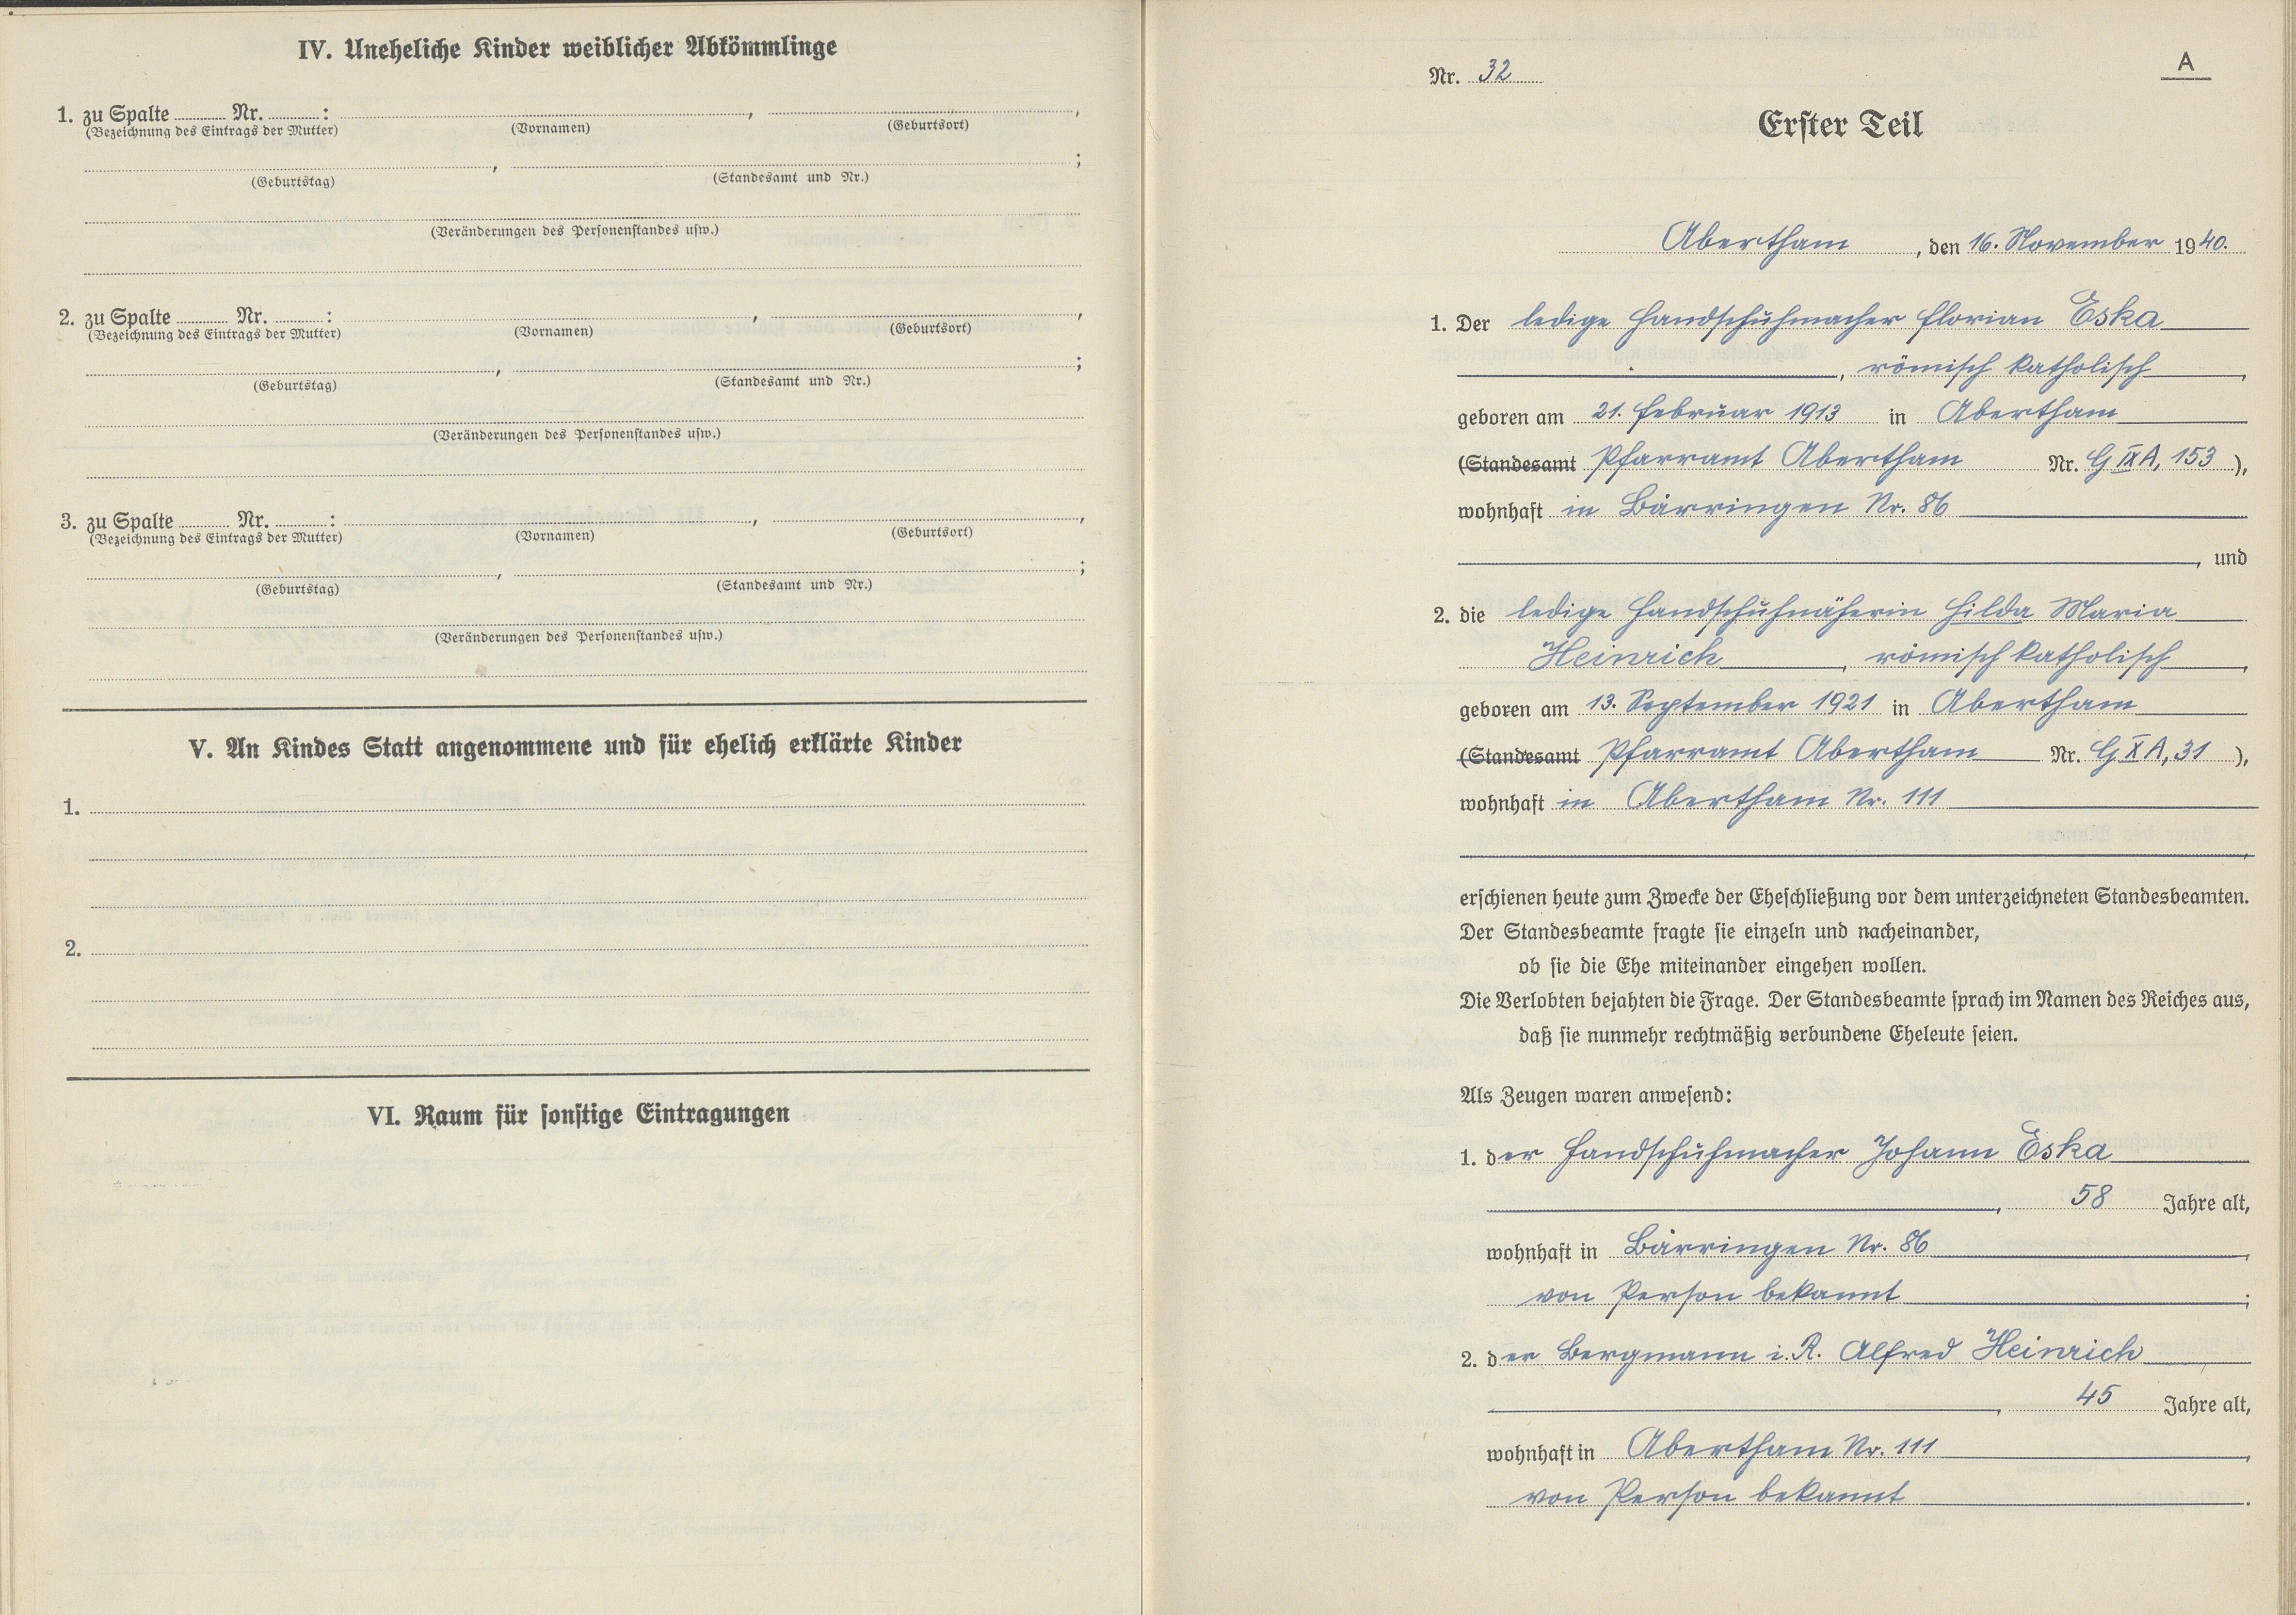 IV. Uneheliche Kinder weiblicher Abkömmlinge
1. zu Spalte ........ Nr. ........ : ........, ........,
(Bezeichnung des Eintrags der Mutter) (Vornamen) (Geburtsort)
........, ........;
(Geburtstag) (Standesamt und Nr.)
(Veränderungen des Personenstandes usw.)
2. zu Spalte ........ Nr. ........ : ........, ........,
(Bezeichnung des Eintrags der Mutter) (Vornamen) (Geburtsort)
........, ........;
(Geburtstag) (Standesamt und Nr.)
(Veränderungen des Personenstandes usw.)
3. zu Spalte ........ Nr. ........ : ........, ........,
(Bezeichnung des Eintrags der Mutter) (Vornamen) (Geburtsort)
........, ........;
(Geburtstag) (Standesamt und Nr.)
(Veränderungen des Personenstandes usw.)
V. An Kindes Statt angenommene und für ehelich erklärte Kinder
1.
2.
VI. Raum für sonstige Eintragungen
A
Nr. 32
Erster Teil
Abertham, den 16. November 1940.
1. Der ledige Handschuhmacher Florian Eska
, römisch katholisch,
geboren am 21. Februar 1913 in Abertham
(Standesamt Pfarramt Abertham Nr. G IX A, 153),
wohnhaft in Bärringen Nr. 86
, und
2. die ledige Handschuhnäherin Hilda Maria
Heinrich, römisch katholisch,
geboren am 13. September 1921 in Abertham
(Standesamt Pfarramt Abertham Nr. G X A, 31),
wohnhaft in Abertham Nr. 111
,
erschienen heute zum Zwecke der Eheschließung vor dem unterzeichneten Standesbeamten.
Der Standesbeamte fragte sie einzeln und nacheinander,
ob sie die Ehe miteinander eingehen wollen.
Die Verlobten bejahten die Frage. Der Standesbeamte sprach im Namen des Reiches aus,
daß sie nunmehr rechtmäßig verbundene Eheleute seien.
Als Zeugen waren anwesend:
1. der Handschuhmacher Johann Eska
, 58 Jahre alt,
wohnhaft in Bärringen Nr. 86,
von Person bekannt;
2. der Bergmann i. R. Alfred Heinrich
, 45 Jahre alt,
wohnhaft in Abertham Nr. 111,
von Person bekannt.